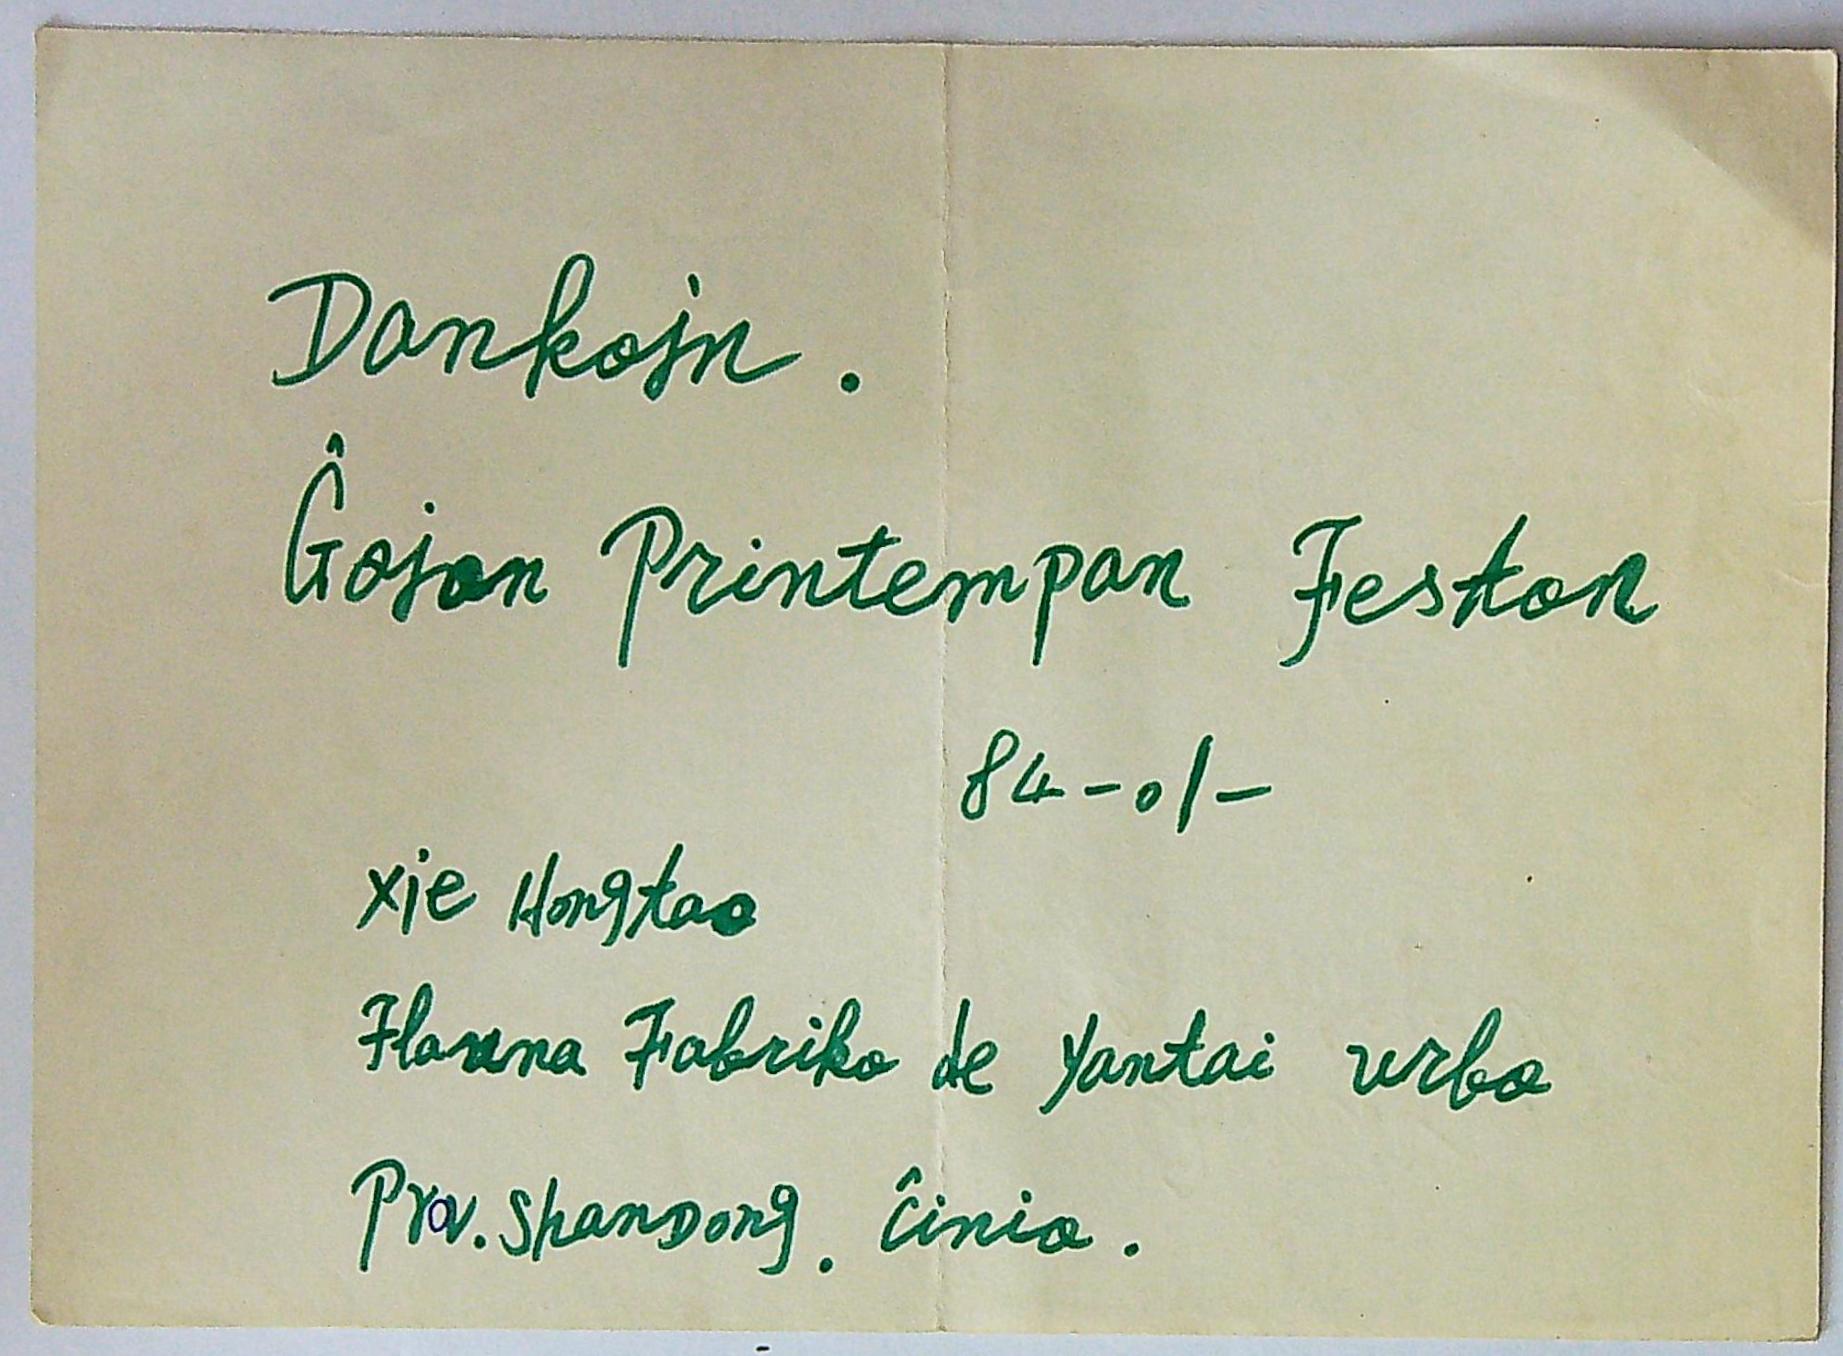 Dankojn.
Ĝojan Printempan Feston
84-01-
Xie Hongtao
Flanna Fabriko de Yantai urbo
Prov. ShanDong. Ĉinio.